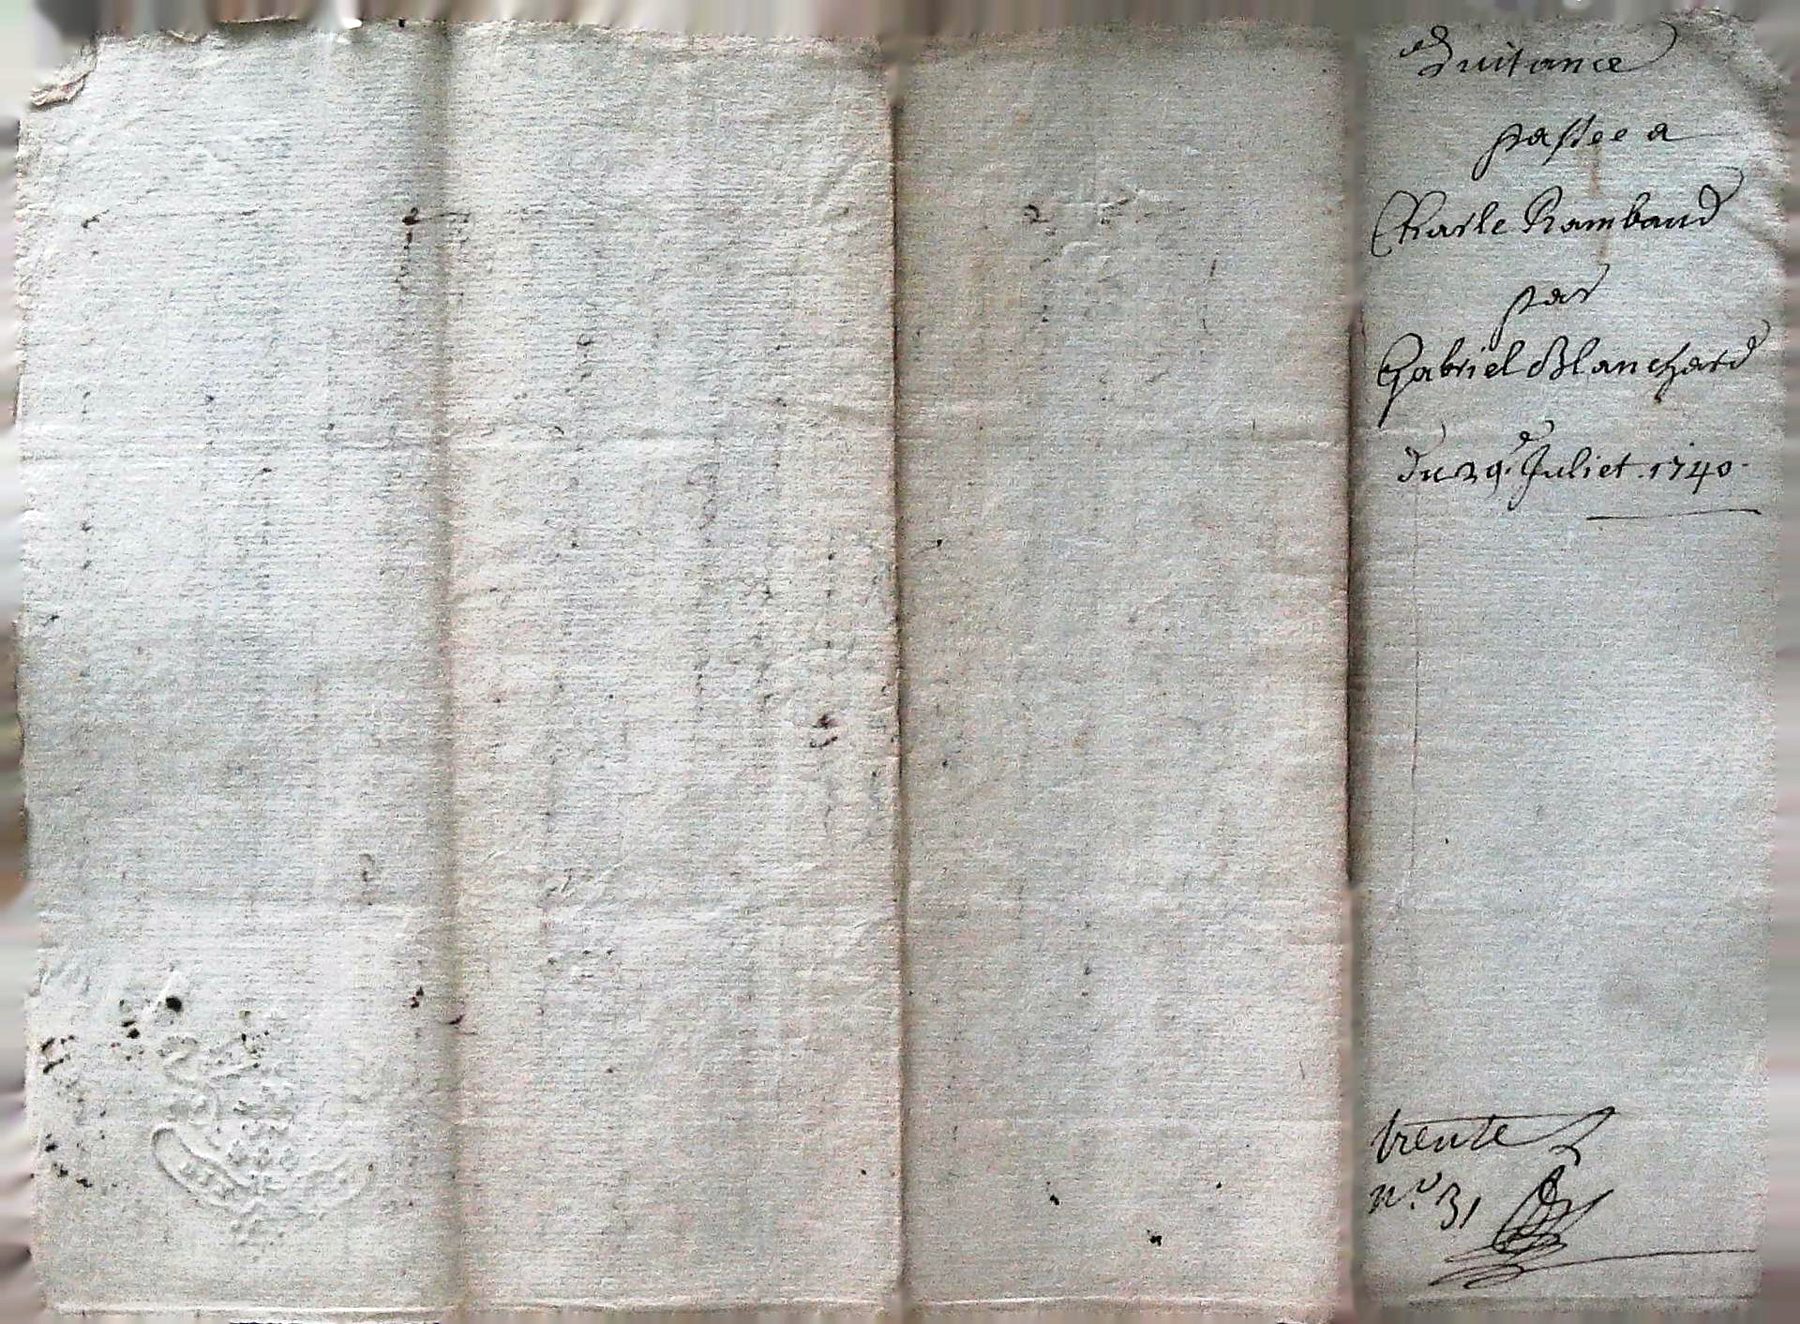 Quitance
passée a
Charle Rambaud
par
Gabriel Blanchard
du 29e Juliet 1740
trente
n.o 31